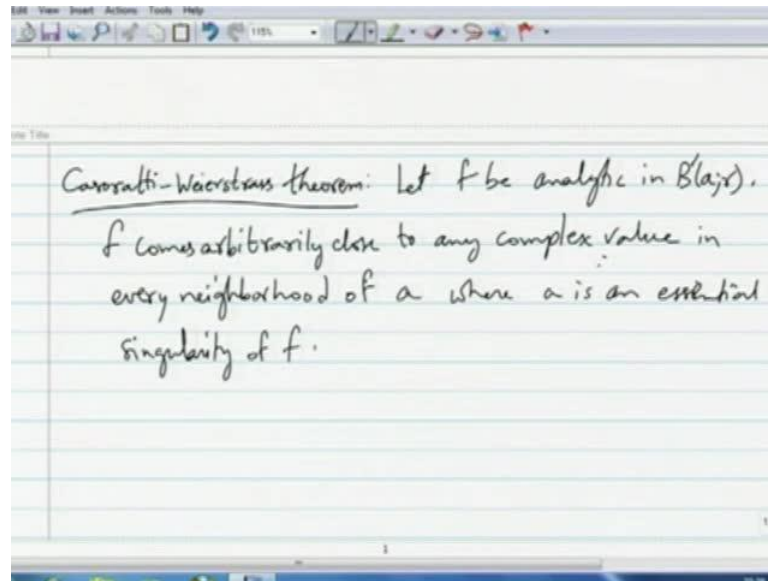 Edit View Insert Actions Tools Help
115%
Note Title
Casoratti-Weierstrass theorem: Let f be analytic in B'(a;r).
f comes arbitrarily close to any complex value in
every neighborhood of a where a is an essential
singularity of f.
1